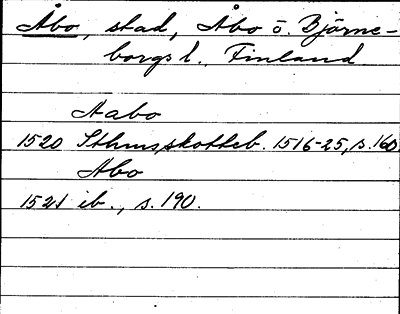 Åbo, stad, Åbo o. Björne-
borgs l., Finland
Aabo
1520 Sthmsskotteb. 1516-25, s. 160
Abo
1521 ib., s. 190.